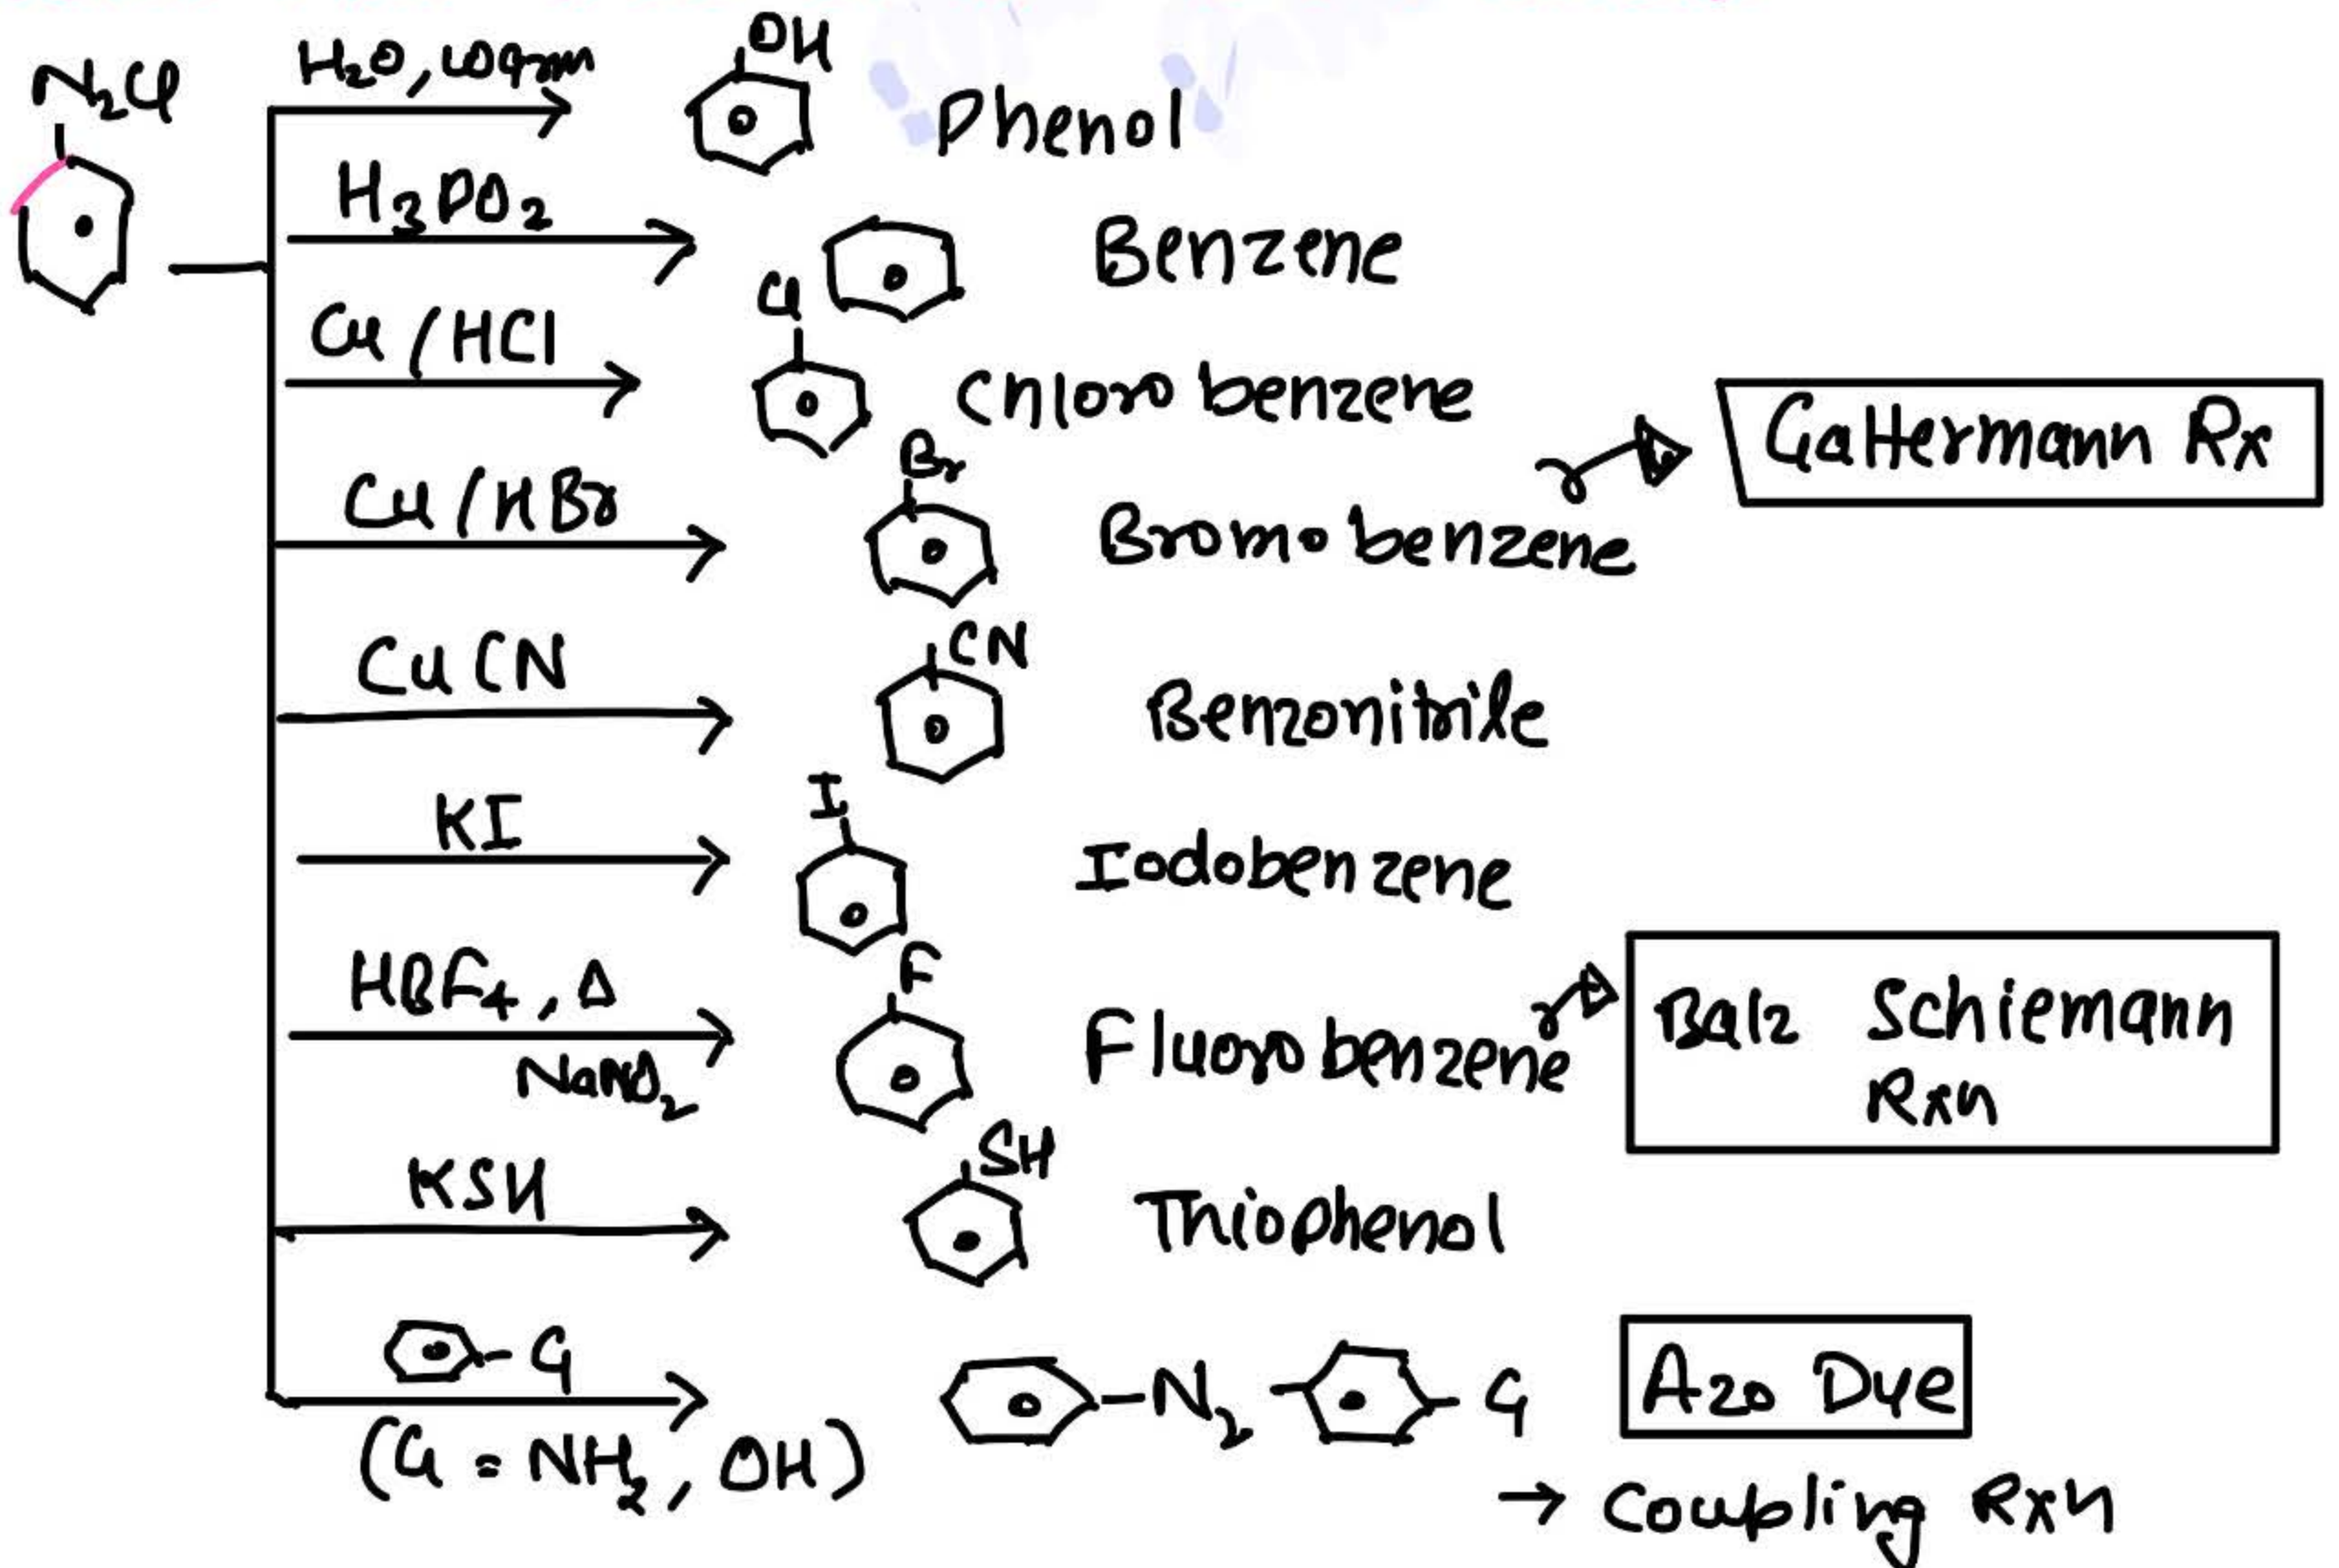 N₂Cl
H₂O, warm
OH
Phenol
H₃PO₂
Benzene
Cu/HCl
Cl
Chloro benzene
Gattermann Rx
Cu/HBr
Br
Bromo benzene
CuCN
CN
Benzonitrile
KI
I
Iodobenzene
HBF₄, Δ
NaNO₂
F
Fluoro benzene
Balz Schiemann
Rxn
KSH
SH
Thiophenol
-G
(G = NH₂, OH)
-N₂- -G
Azo Dye
→ Coupling Rxn